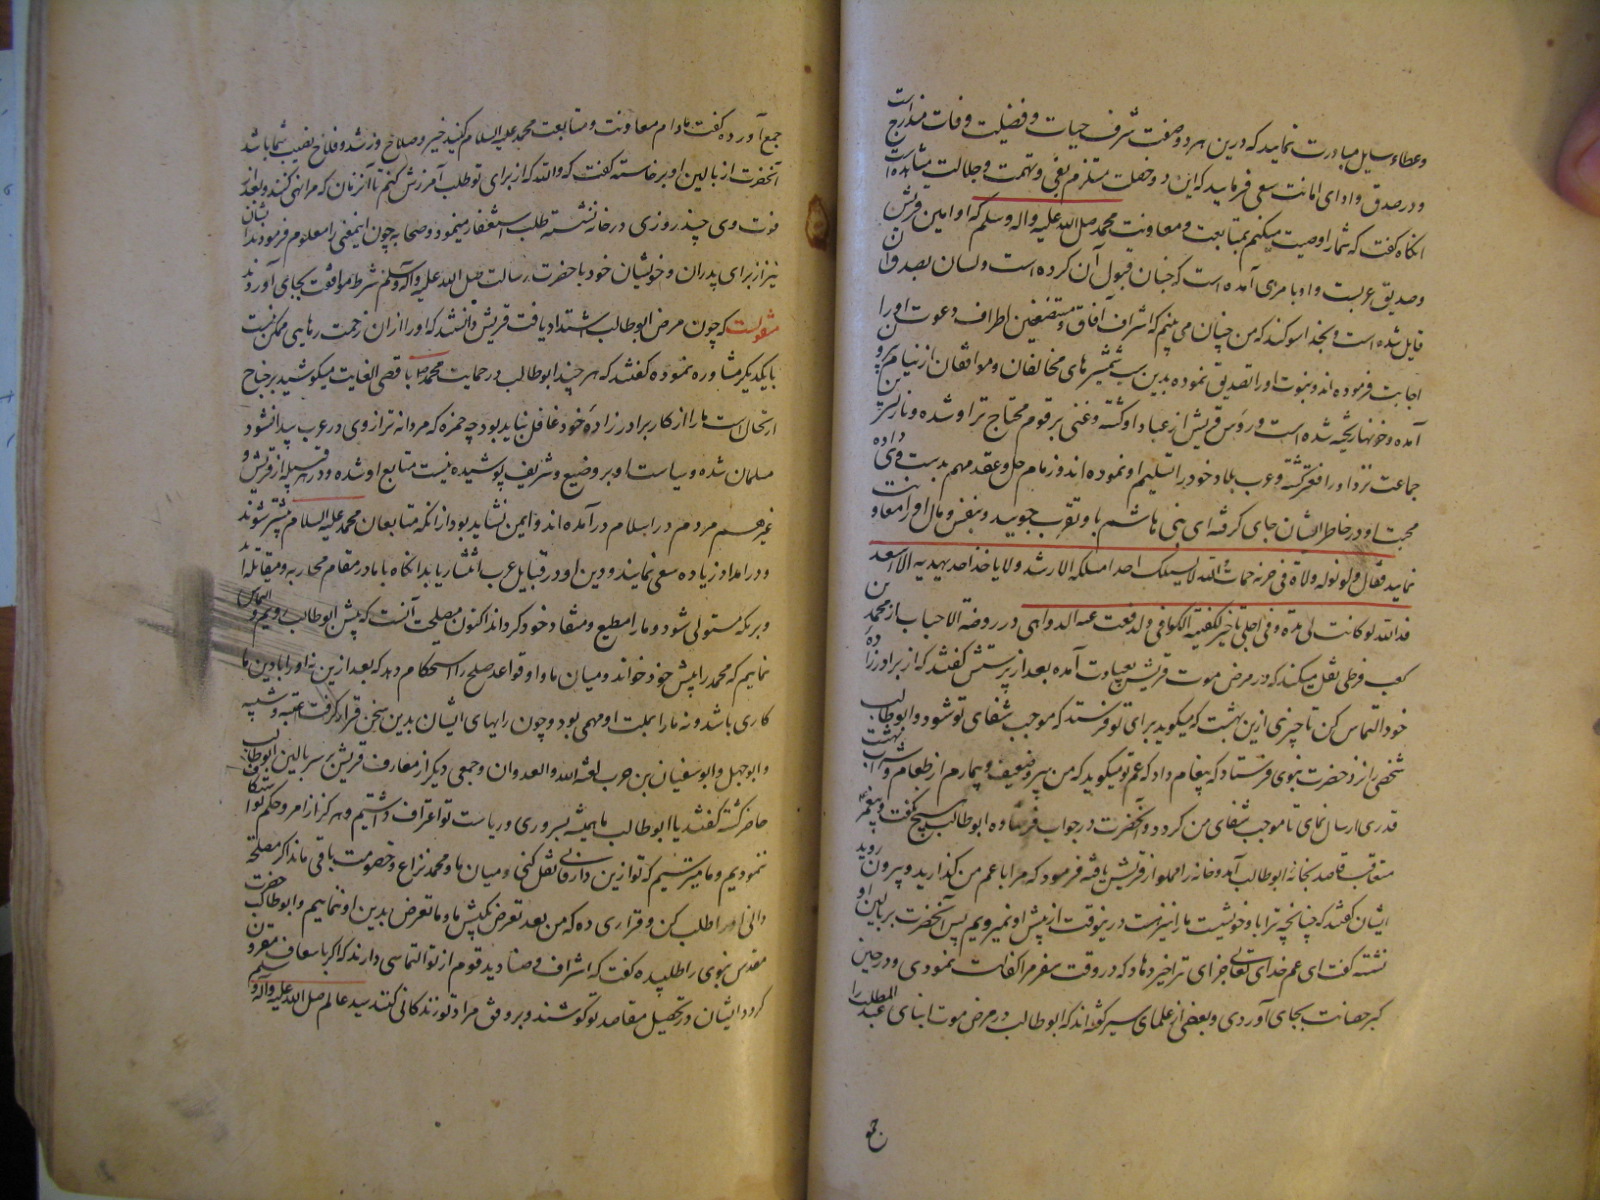 وعطاء سایل مبادرت نمایید که درین هر دو صفت شرف حیات و فضیلت وفات مندرج است
و در صدق و ادای امانت سعی فرمایید که این دو خصلت مستلزم نفی تهمت و جلالت
انکاه کفت که شما را وصیت میکنم بمتابعت و معاونت محمد صلی الله علیه واله وسلم که او امین قریش
و صدیق عربست و او بامری آمده است که جنان قبول آن کرده است و لسان بصدق آن
قایل شده است و بخدا سوکند که من چنان می بینم که اشراف آفاق و مستضعفین اطراف دعوت او را
اجابت فرموده اند و نبوت او را تصدیق نموده بدین سبب شمشیرهای مخالفان و موافقان از نیام بیرون
آمده و خونها ریخته شده است و رؤس قریش از عباد او کشته و غنی بر قوم محتاج تر او شده و
جماعت نزد او رافع کشته و عرب بلاد خود را تسلیم او نموده اند و زمام حل و عقد مهم بدست وی داده
محبت او در خاطر ایشان جای کرفته ای بنی هاشم باو تقرب جویید و بنفس و مال او را معاونت
نمایید فقال ولاة و فی حزبه حماة والله لا یسلک احد امسلکه الا رشد ولا یاخذ احد بهدیه الا سعد
فدالله لو کانت لی مدة و فی اجلی تاخیر لکفیته الکوافی و لدفعت عنه الدواهی و در روضة الاحباب از محمد بن
کعب قرظی نقل میکند که در مرض موت قریش بعیادت آمده بعد از پرسش کفتند که از برادر زاده
خود التماس کن تا چیزی ازین بهشت که میکوید برای تو فرستد که موجب شفای تو شود و ابوطالب
شخصی را نزد حضرت نبوی فرستاد که پیغام داد که عم تو میکوید که من پیر و ضعیف و بیمارم از طعام و شراب بهشت
قدری ارسال نمای تا موجب شفای من کردد و آنحضرت در جواب فرستاده ابوطالب هیچ نکفت و
متعاقب قاصد بخانه ابوطالب آمد و خانه را مملو از قریش یافته فرمود که مرا با عم من کذارید و بیرون روید
ایشان کفتند که چنانچه ترا باو خویشیست ما را نیز هست درینوقت از پیش او نمیرویم پس آنحضرت بر بالین او
نشسته کفت ای عم خدای تعالی جزای ترا خیر دهاد که در وقت صغر مرا کفالت نمودی و در حین
کبر حضانت بجای آوردی و بعضی از علمای سیر کفته اند که ابوطالب در مرض موت ابنای عبد المطلب را
جمع آورده کفت مادام معاونت و متابعت محمد علیه السلام کنید خیر و صلاح و رشد و فلاح نصیب شما باشد
آنحضرت از بالین او برخاسته کفت که والله که از برای تو طلب آمرزش کنم تا آنزمان که مرا نهی کنند و بعد از
فوت وی چند روزی در خانه نشسته طلب استغفار مینمود و صحابه چون اینمعنی را معلوم فرمودند ایشان
نیز از برای پدران و خویشان خود با حضرت رسالت صلی الله علیه واله وسلم شرط موافقت بجای آوردند
منقولست که چون مرض ابوطالب اشتداد یافت قریش دانستند که او را از آن زحمت رهایی ممکن نیست
با یکدیکر مشاوره نموده کفتند که هر چند ابوطالب در حمایت محمد باقصی الغایت میکوشید بر جناح
ارتحال است ما را از کار برادر زاده خود غافل نباید بود چه حمزه که مردانه تر از وی در عرب پیدا نشود
مسلمان شده و سیاست او بر وضیع و شریف پوشیده نیست متابع او شده و در هر قبیله از قریش و
غیرهم مردم در اسلام درآمده اند و ایمن نشاید بود از آنکه متابعان محمد علیه السلام بیشتر شوند
و در امداد زیاده سعی نمایند و دین او در قبایل عرب انتشار یابد آنکاه با ما در مقام محاربه و مقاتله آید
و بر مکه مستولی شود و ما را مطیع و منقاد خود کرداند اکنون مصلحت آنست که پیش ابوطالب رویم و التماس
نماییم که محمد را پیش خود خواند و میان ما و او قواعد صلح را استحکام دهد که بعد ازین نه او را با دین ما
کاری باشد و نه ما را بملت او مهمی بود و چون رایهای ایشان بدین سخن قرار کرفت عتبه و شیبه
و ابوجهل و ابوسفیان بن حرب لعنة الله والعدوان و جمعی دیکر از معارف قریش بر سر بالین ابوطالب
حاضر کشته کفتند یا اباطالب ما همیشه بسروری و ریاست تو اعتراف داشتیم و هرکز از امر و حکم تو استنکاف
ننمودیم و ما میترسیم که تو ازین دار فانی نقل کنی و میان ما و محمد نزاع و خصومت باقی ماند اکر مصلحت
دانی او را طلب کن و قراری ده که من بعد تعرض بکیش ما و ما تعرض بدین او ننماییم و ابوطالب حضرت
مقدس نبوی را طلبیده کفت که اشراف و صنادید قوم از تو التماسی دارند که اکر باسعاف مقرون
کردد ایشان در تحصیل مقاصد تو کوشند و بر وفق مراد تو زندکانی کنند سید عالم صلی الله علیه واله وسلم